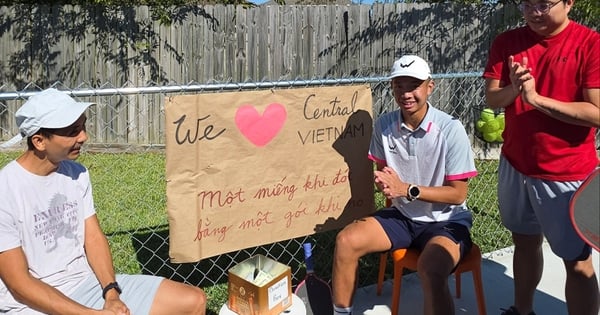 We Central
VIETNAM
Một miếng khi đói
bằng một gói khi no
ENDLESS